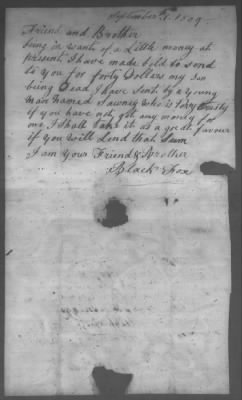 September 1. 1809
Friend and Brother
being in wante of a Little money at
present I have made bold to send
to you for forty Dollars my son
being Dead I have sent by a young
man named Tawney who is very trusty
if you have not got any money for
me I Shall take it as a great favour
if you will Lend that Sum
I am your Friend & Brother
Black Fox